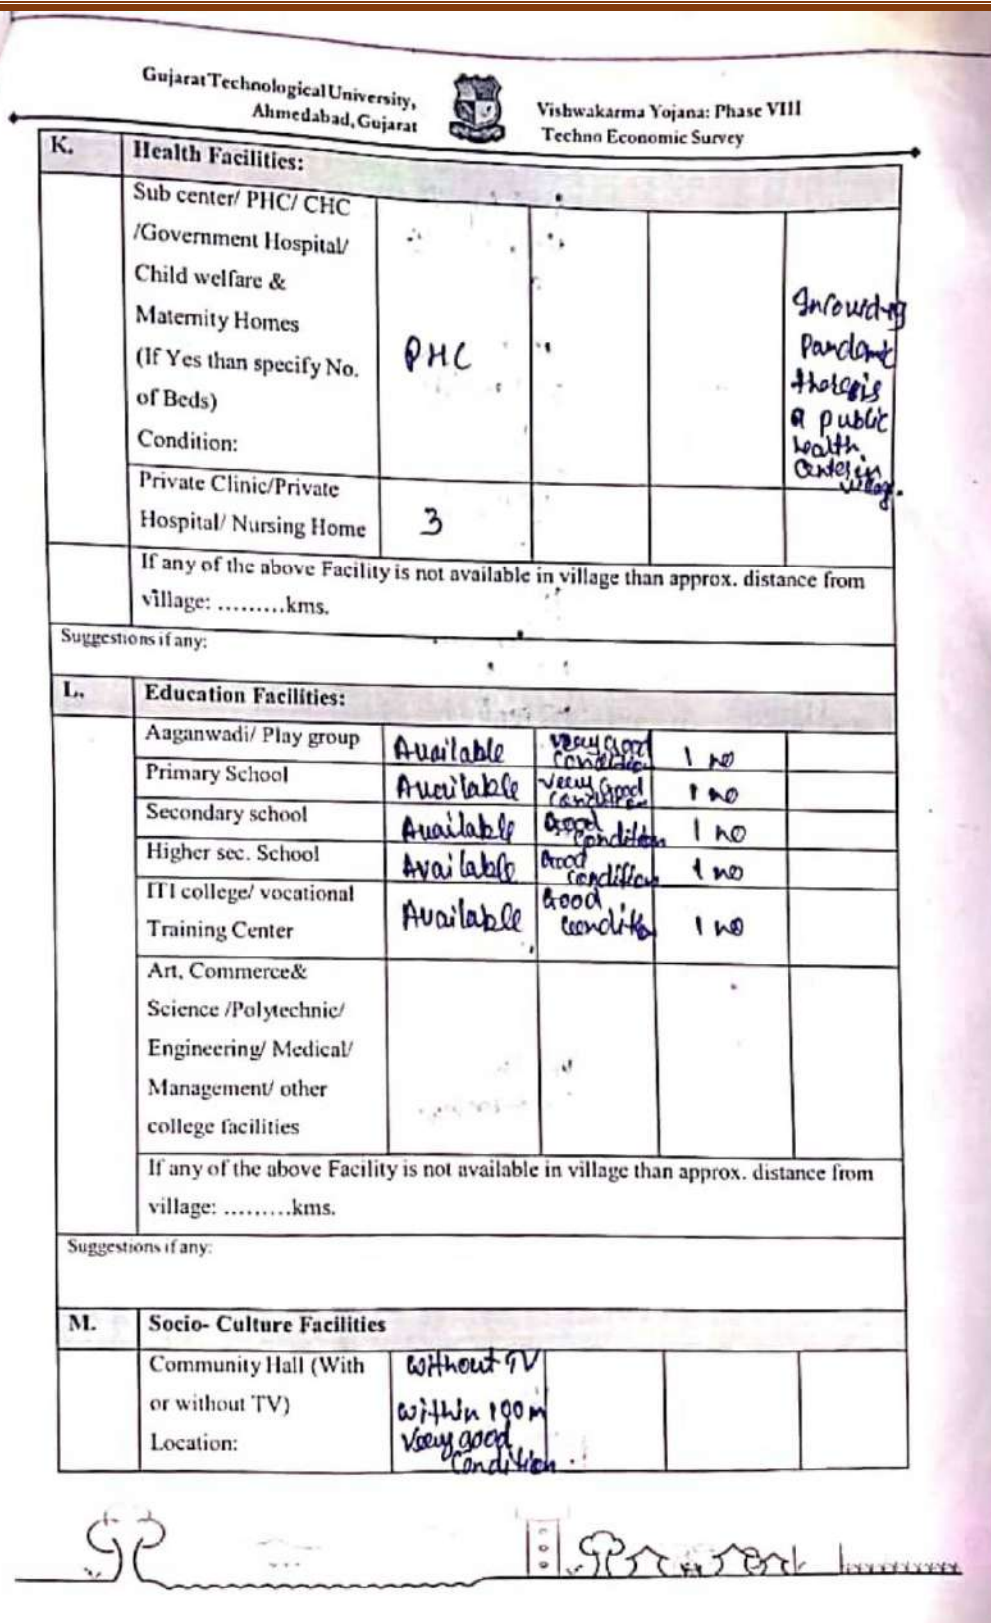 Gujarat Technological University,
Ahmedabad, Gujarat
Vishwakarma Yojana: Phase VIII
Techno Economic Survey
K. Health Facilities:
Sub center/ PHC/ CHC
/Government Hospital/
Child welfare &
Maternity Homes
(If Yes than specify No.
of Beds)
Condition:
PHC
Pandemt
there is
a public
health
center in
Private Clinic/Private
Hospital/ Nursing Home 3
If any of the above Facility is not available in village than approx. distance from
village: .........kms.
Suggestions if any:
L. Education Facilities:
Aaganwadi/ Play group Available very Good condition 1 no
Primary School Available very Good condition 1 no
Secondary school Available Good condition 1 no
Higher sec. School Available Good condition 1 no
ITI college/ vocational
Training Center Available Good condition 1 no
Art, Commerce&
Science /Polytechnic/
Engineering/ Medical/
Management/ other
college facilities
If any of the above Facility is not available in village than approx. distance from
village: .........kms.
Suggestions if any:
M. Socio- Culture Facilities
Community Hall (With without TV
or without TV) within 100 m
Location: very good
condition